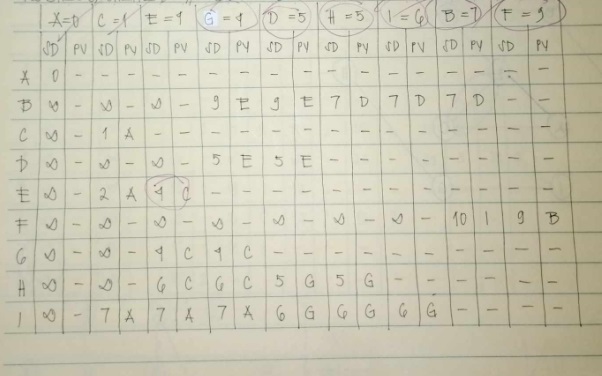 A=0 C=1 E=4 G=4 D=5 H=5 I=6 B=7 F=9
SD PV SD PV SD PV SD PV SD PV SD PV SD PV SD PV SD PV
A 0 - - - - - - - - - - - - - - - - -
B ∞ - ∞ - ∞ - 9 E 9 E 7 D 7 D 7 D - -
C ∞ - 1 A - - - - - - - - - - - - - -
D ∞ - ∞ - ∞ - 5 E 5 E - - - - - - - -
E ∞ - 2 A 4 C - - - - - - - - - - - -
F ∞ - ∞ - ∞ - ∞ - ∞ - ∞ - ∞ - 10 I 9 B
G ∞ - ∞ - 4 C 4 C - - - - - - - - - -
H ∞ - ∞ - 6 C 6 C 5 G 5 G - - - - - -
I ∞ - 7 A 7 A 7 A 6 G 6 G 6 G - - - -